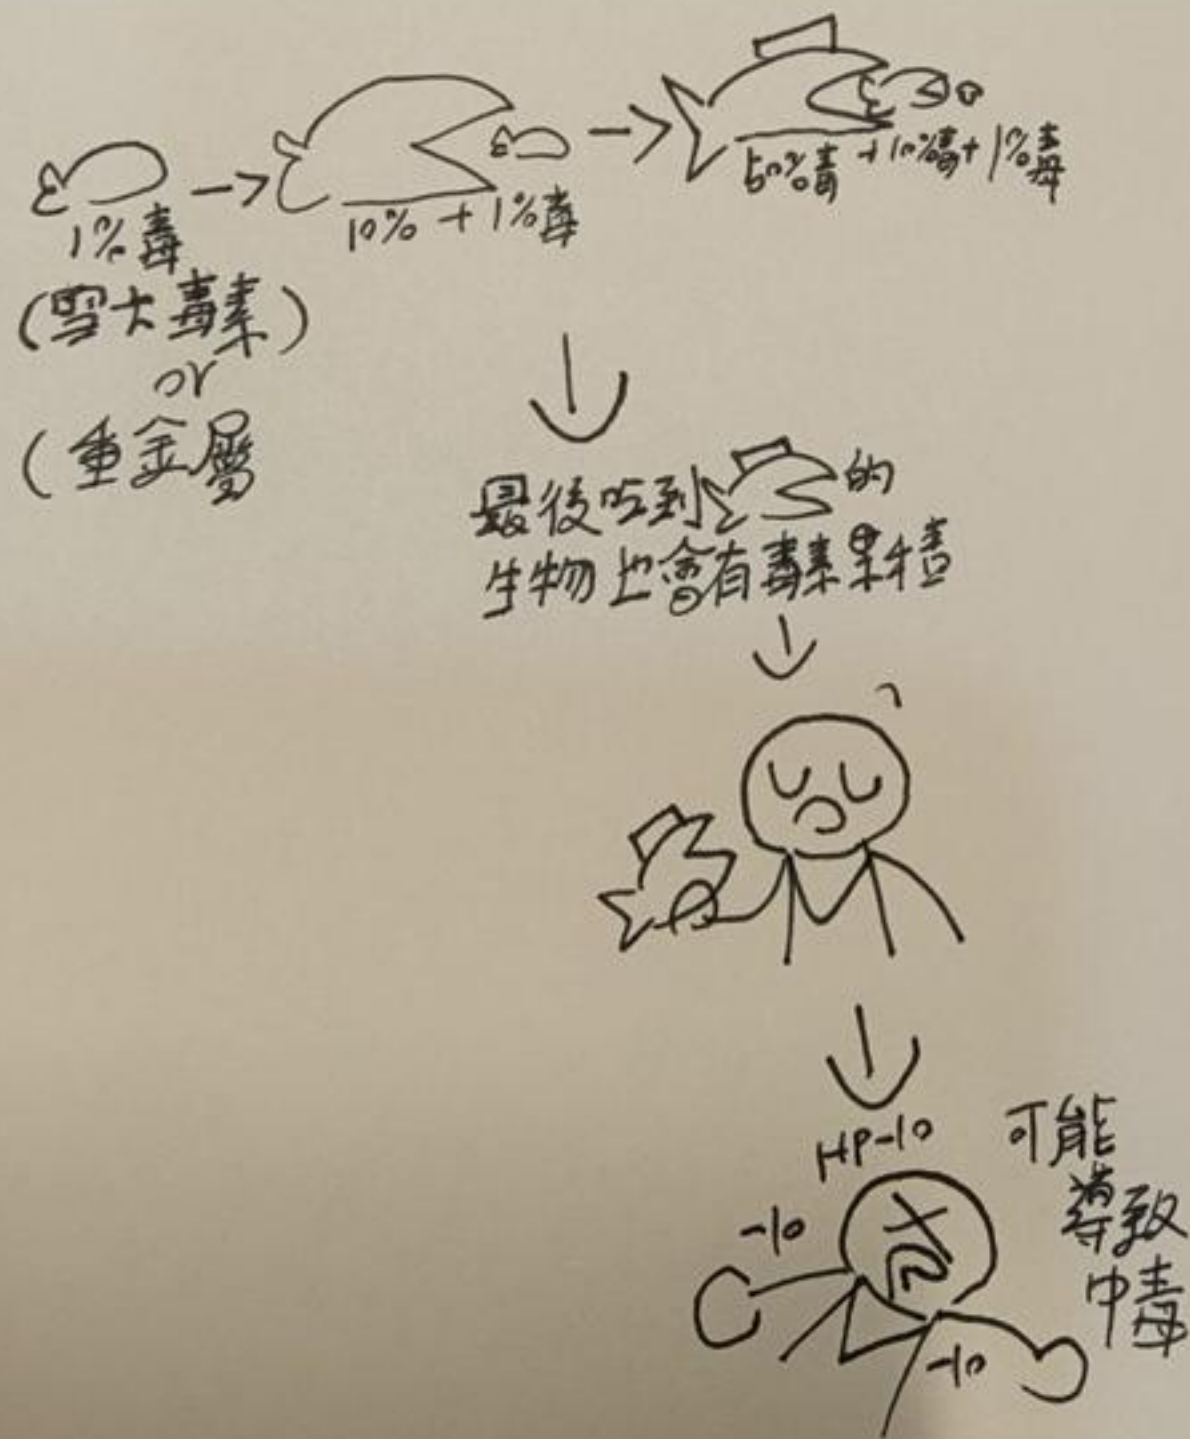 1%毒
(雪卡毒素)
or
(重金屬
10% + 1%毒
50%毒 + 10%毒 + 1%毒
最後吃到 的
生物也會有毒素累積
HP-10
-10
-10
可能
導致
中毒